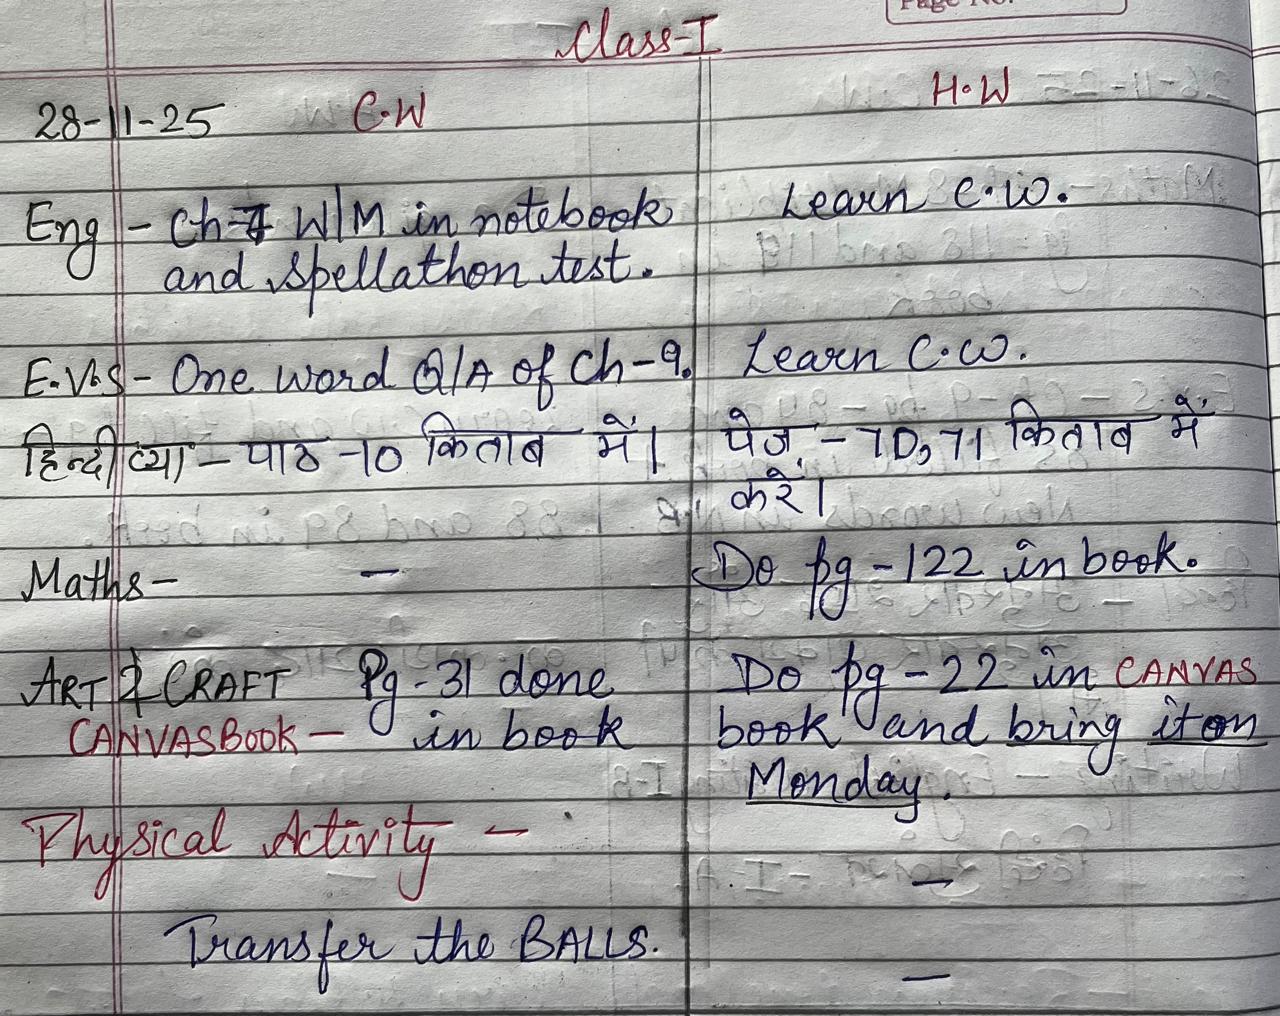 Page No.
Class-I
28-11-25 C.W H.W
Eng - Ch-7 W/M in notebook Learn C.W.
and spellathon test.
E.V.S - One word Q/A of Ch-9. Learn C.W.
हिन्दी व्या - पाठ -10 किताब में। पेज - 70, 71 किताब में
करें।
Maths - — Do pg - 122 in book.
ART & CRAFT Pg-31 done Do pg - 22 in CANVAS
CANVAS BOOK - in book book and bring it on
Monday.
Physical Activity -
—
Transfer the BALLS.
—